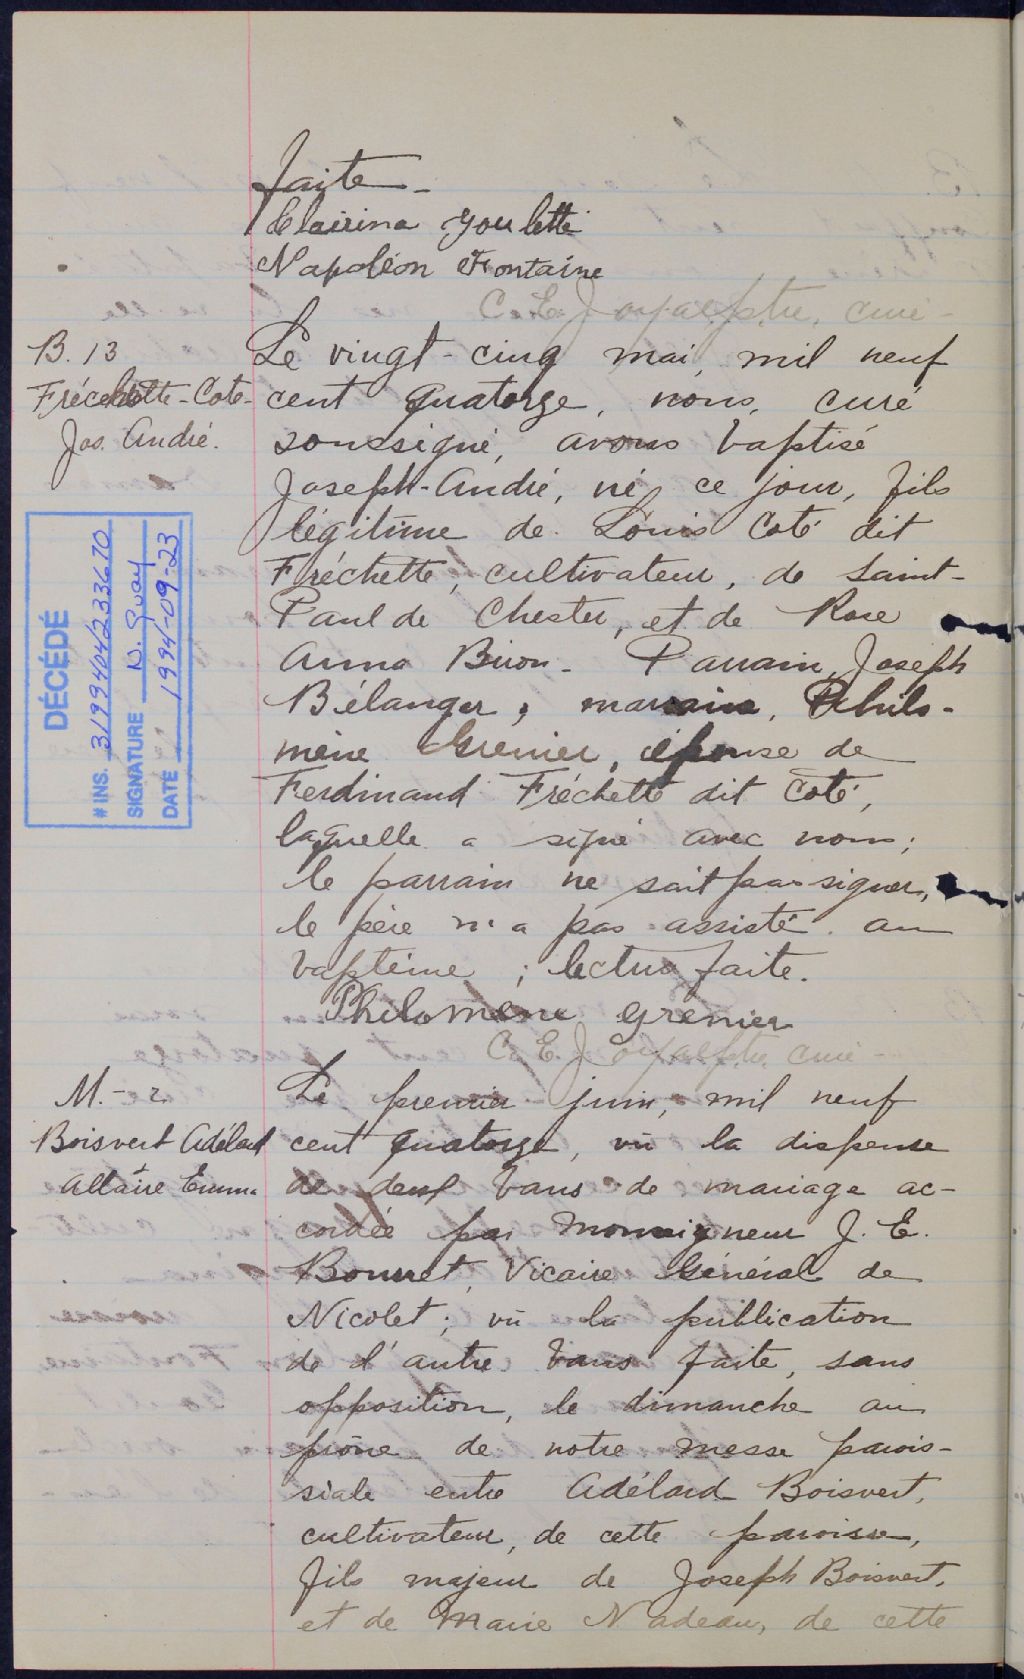 faite -
Clairina Goulette
Napoléon Fontaine
C. E. Joyal, ptre, curé -
B. 13
Fréchette - Coté -
Jos. André.
Le vingt-cinq mai, mil neuf
cent quatorze, nous, curé
soussigné, avons baptisé
Joseph-André, né ce jour, fils
légitime de Louis Coté dit
Fréchette, cultivateur, de Saint-
Paul de Chester, et de Rose
Anna Biron - Parrain, Joseph
Bélanger, marraine, Philo-
mène Grenier, épouse de
Ferdinand Fréchette dit Coté,
laquelle a signé avec nous;
le parrain ne sait pas signer,
le père n'a pas assisté au
baptême ; lecture faite.
Philomène Grenier
C. E. Joyal, ptre, curé -
DÉCÉDÉ
# INS. 3199404233670
SIGNATURE N. Guay
DATE 1994-09-23
M. - 2.
Boisvert Adélard
+
Allaire Emma
Le premier juin, mil neuf
cent quatorze, vû la dispense
de deux bans de mariage ac-
cordée par Monseigneur J. E.
Bourret, Vicaire Général de
Nicolet ; vû la publication
de l'autre bans faite, sans
opposition, le dimanche au
prône de notre messe parois-
siale entre Adélard Boisvert,
cultivateur, de cette paroisse,
fils majeur de Joseph Boisvert,
et de Marie Nadeau, de cette